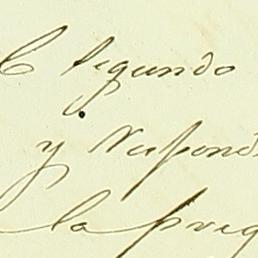 segundo
y respond
la preg